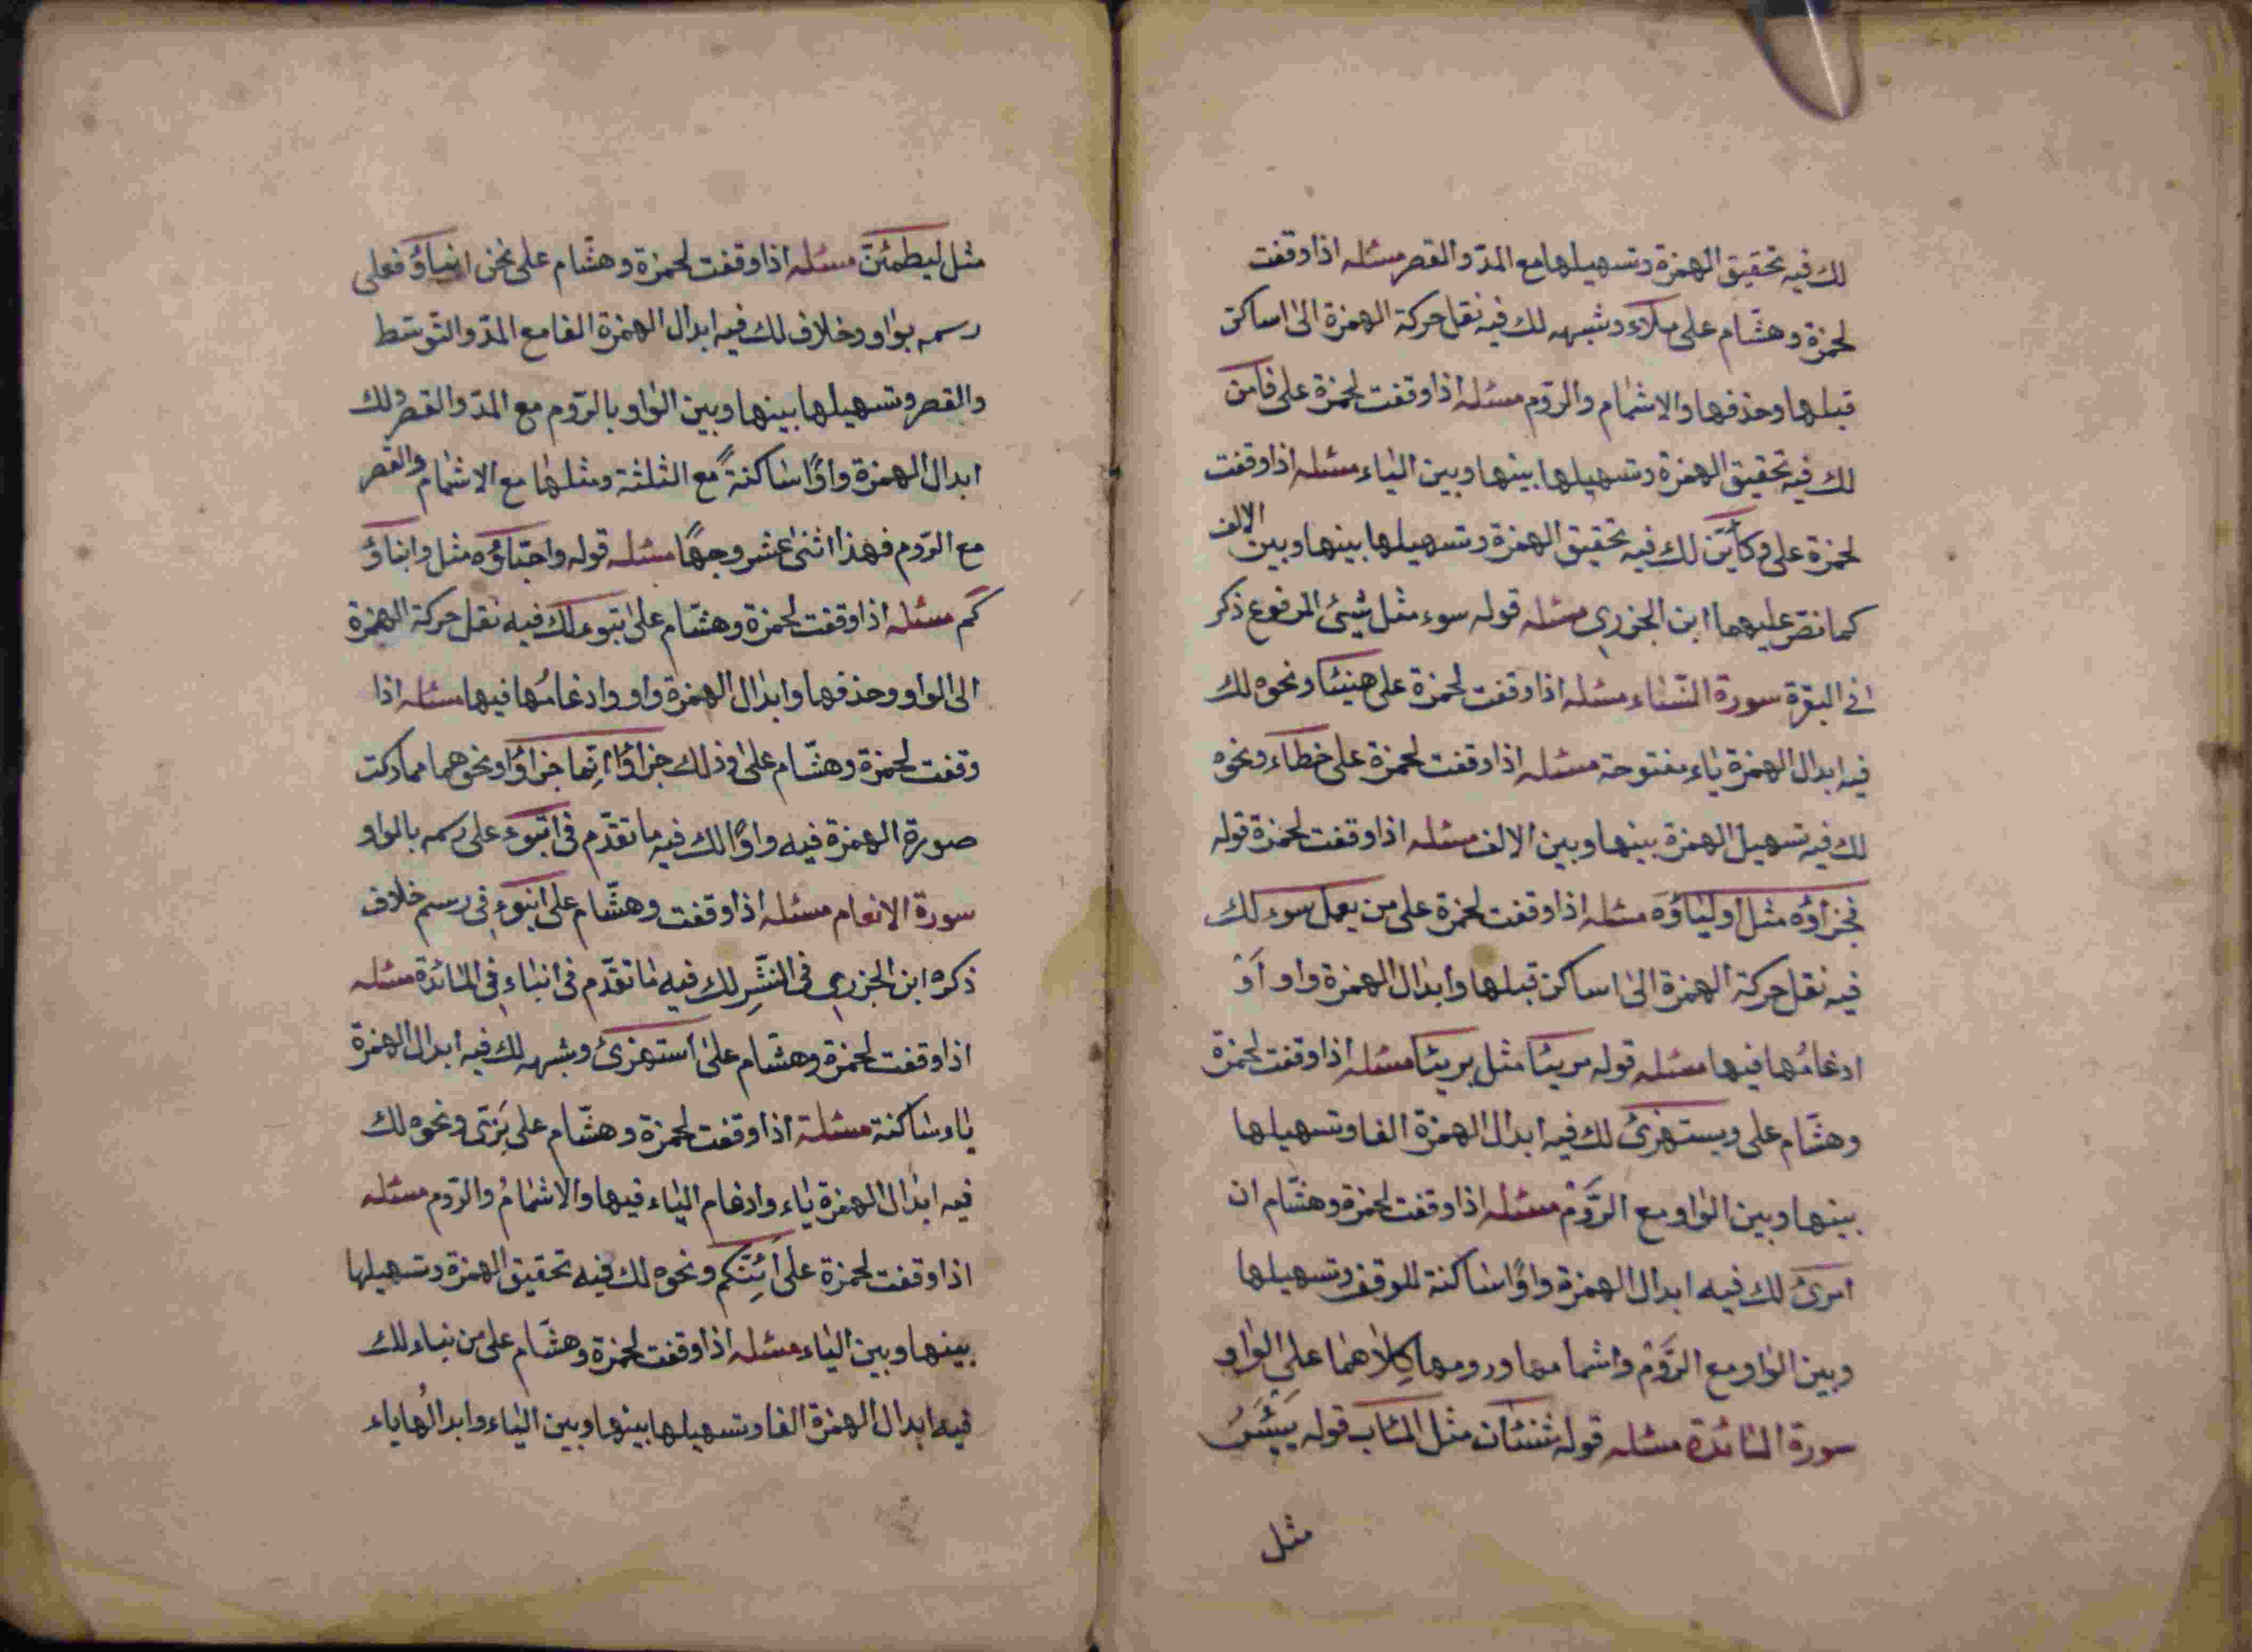 لك فيه تحقيق الهمزة وتسهيلها مع المدّ والقصر مسئله اذا وقفت
لحمزة وهشّام على ملاء وشبهه لك فيه نقل حركة الهمزة الى اساكن
قبلها وحذفها والاشمام والرّوم مسئله اذا وقفت لحمزة على فامن
لك فيه تحقيق الهمزة وتسهيلها بينها وبين الياء مسئله اذا وقفت
لحمزة على وكأيّن لك فيه تحقيق الهمزة وتسهيلها بينها وبين الالف
كما نصّ عليهما ابن الجزري مسئله قوله سوء مثل شيئ المرفوع ذكر
في البقرة سورة النّساء مسئله اذا وقفت لحمزة على هنيئا ونحوه لك
فيه ابدال الهمزة ياء مفتوحة مسئله اذا وقفت لحمزة على خطاء ونحوه
لك فيه تسهيل الهمزة بينها وبين الالف مسئله اذا وقفت لحمزة قوله
فجزاؤه مثل اولياؤه مسئله اذا وقفت لحمزة على من يعمل سوء لك
فيه نقل حركة الهمزة الى اساكن قبلها وابدال الهمزة واو أوْ
ادغامُها فيها مسئله قوله مريئا مثل بريئا مسئله اذا وقفت لحمزة
وهشّام على ويستهزئ لك فيه ابدال الهمزة الفا وتسهيلها
بينها وبين الواو مع الرَّوْم مسئله اذا وقفت لحمزة وهشّام ان
امرئ لك فيه ابدال الهمزة واوًا ساكنة للوقف وتسهيلها
وبين الواو مع الرَّوْم واشمامها ورومها كِلاهما على الواو
سورة المائدة مسئله قوله شنئان مثل المئاب قوله يَيْئَسُ
مثل
مثل ليطمئنّ مسئله اذا وقفت لحمزة وهشّام على نحن ابناؤ فعلى
رسمه بواو وخلاف لك فيه ابدال الهمزة الفا مع المدّ والتّوسّط
والقصر وتسهيلها بينها وبين الواو بالرّوم مع المدّ والقصر ولك
ابدال الهمزة واوًا ساكنةً مع الثلثة ومثلها مع الاشمام والقصر
مع الرّوم فهذا اثنى عشر وجهًا مسئله قوله واحبّاؤه مثل وابناؤ
كم مسئله اذا وقفت لحمزة وهشّام على تبوء لك فيه نقل حركة الهمزة
الى الواو وحذفها وابدال الهمزة واو وادغامُها فيها مسئله اذا
وقفت لحمزة وهشّام على وذلك جزاؤا انّما جزاؤا ونحوهما مما ركبت
صورة الهمزة فيه واوًا لك فيه ما تقدّم في اتبوء على رسمه بالواو
سورة الانعام مسئله اذا وقفت وهشّام على انبوء في رسم خلاف
ذكره ابن الجزري في النّشرِ لك فيه ما تقدّم في ابناء في المائدة مسئله
اذا وقفت لحمزة وهشّام على استهزئ وشبهه لك فيه ابدال الهمزة
ياء ساكنة مسئلة اذا وقفت لحمزة وهشّام على بَرّى ونحوه لك
فيه ابدال الهمزة ياء وادغام الياء فيها والاشمامُ والرّوم مسئله
اذا وقفت لحمزة على أئِنّكم ونحوه لك فيه تحقيق الهمزة وتسهيلها
بينها وبين الياء مسئله اذا وقفت لحمزة وهشّام على من نباء لك
فيه ابدال الهمزة الفا وتسهيلها بينها وبين الياء وابدالُها ياء